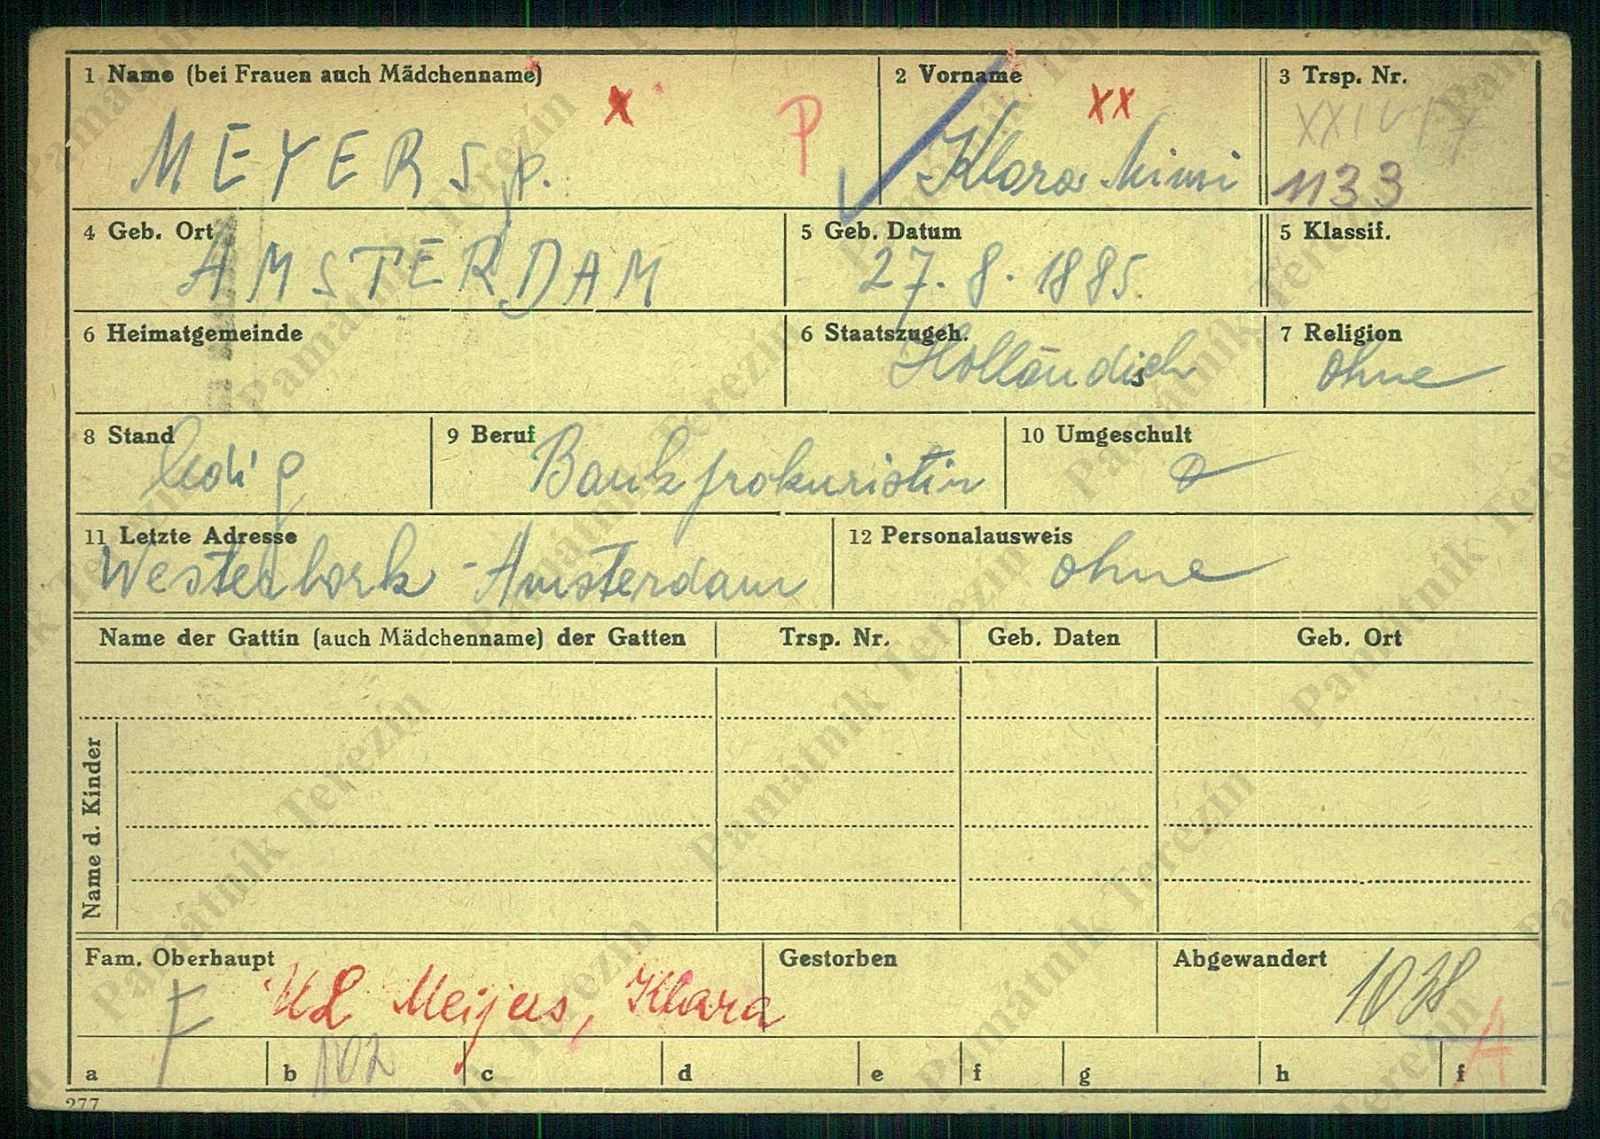 1 Name (bei Frauen auch Mädchenname)
MEYERS p.
X
P
2 Vorname
XX
Klara Mimi
3 Trsp. Nr.
XXIV/7
1133
4 Geb. Ort
AMSTERDAM
5 Geb. Datum
27. 8. 1885
5 Klassif.
6 Heimatgemeinde
6 Staatszugeh.
Holländisch
7 Religion
ohne
8 Stand
ledig
9 Beruf
Bankprokuristin
10 Umgeschult
11 Letzte Adresse
Westerbork - Amsterdam
12 Personalausweis
ohne
Name der Gattin (auch Mädchenname) der Gatten
Trsp. Nr.
Geb. Daten
Geb. Ort
Name d. Kinder
Fam. Oberhaupt
F
Meijers, Klara
Gestorben
Abgewandert
1038
A
a
b
102
c
d
e
f
g
h
f
277
Památník Terezín